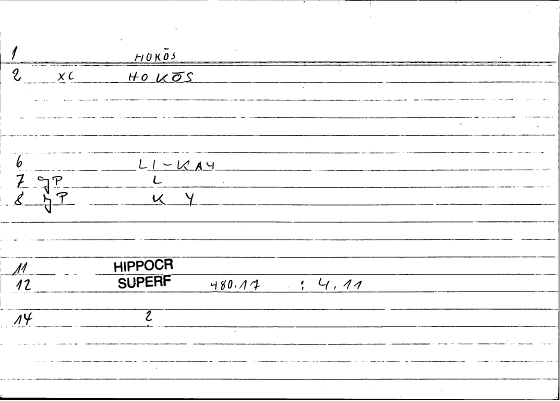 1 HOKŌS
2 XC HOKŌS
6 LI-KAY
7 JP L
8 JP K Y
11 HIPPOCR
12 SUPERF 480.17 : 4.11
14 2